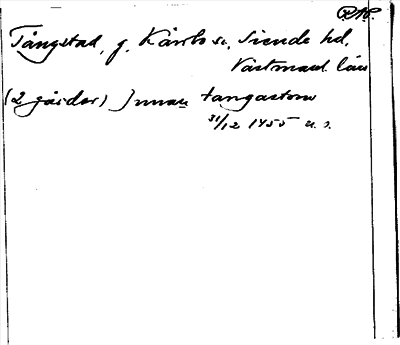 RAP.
Tångstad, g. Kärrbo sn, Siende hd,
Västmanl. län
(2 gårdar) J nnan tangastom
31/12 1455 u. s.